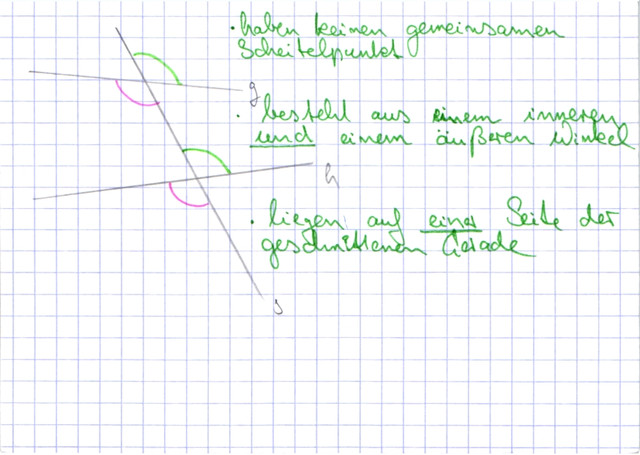 • haben keinen gemeinsamen
Scheitelpunkt
g
• besteht aus einem inneren
und einem äußeren Winkel
h
• liegen auf einer Seite der
geschnittenen Gerade
s